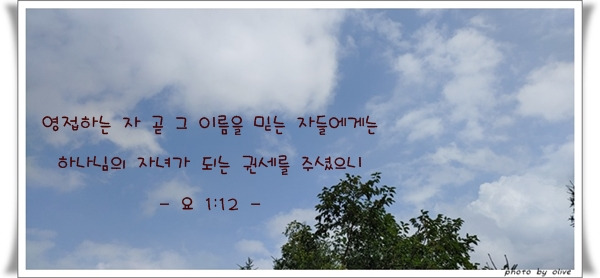 영접하는 자 곧 그 이름을 믿는 자들에게는
하나님의 자녀가 되는 권세를 주셨으니
- 요 1:12 -
photo by olive